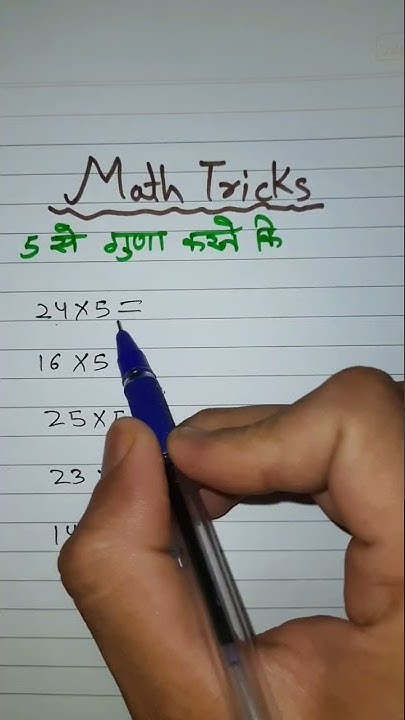 Math Tricks
5 से गुणा करने कि
24×5=
16×5
25×5
23
14